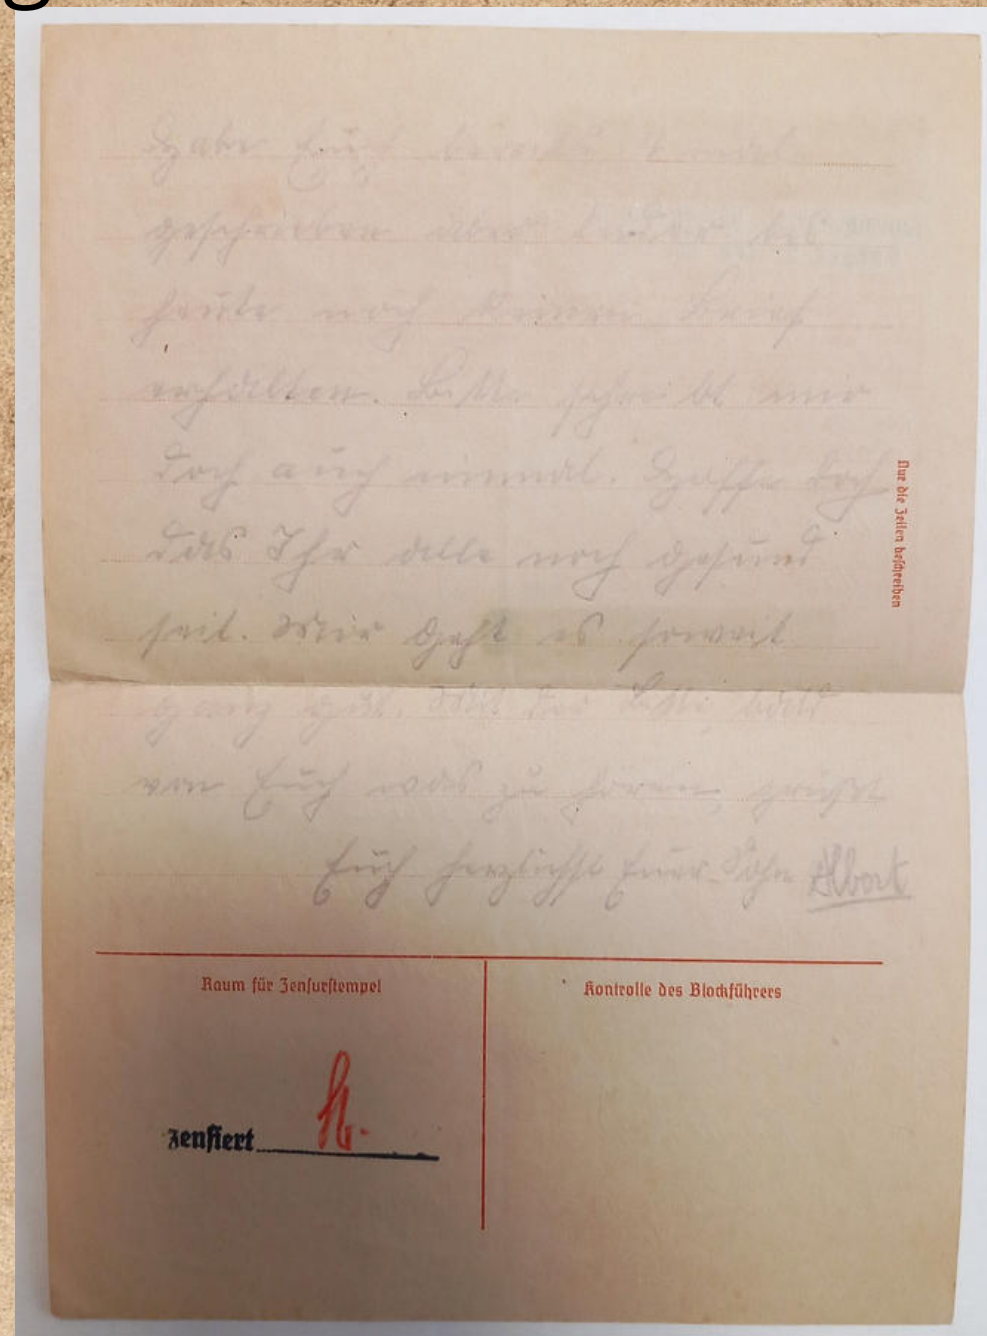 Habe Euch bereits
geschrieben aber leider bis
heute noch keinen Brief
erhalten. Bitte schreibt mir
doch auch einmal. Hoffe doch
das Ihr alle noch gesund
seit. Mir geht es soweit
ganz gut. Mit der Bitte bald
von Euch was zu hören, grüßt
Euch herzlichst Euer Sohn Albert
Nur die Zeilen beschreiben
Raum für Zensurstempel
Kontrolle des Blockführers
zensiert